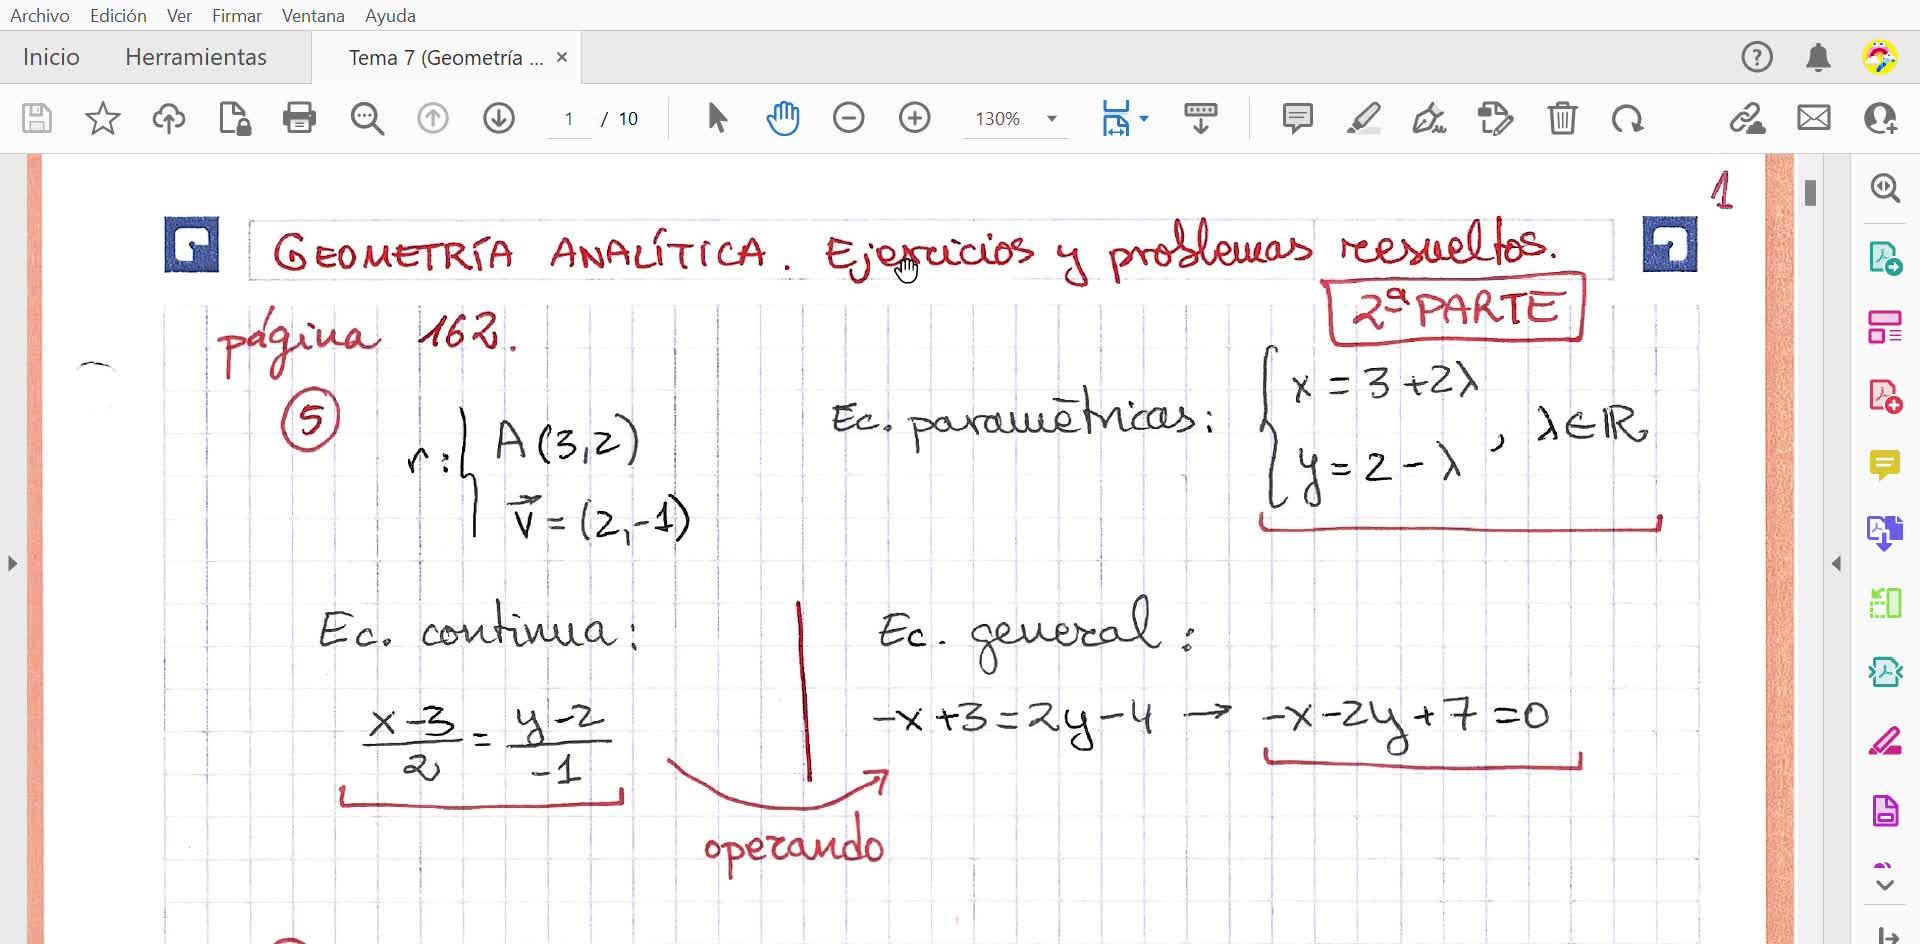 Archivo Edición Ver Firmar Ventana Ayuda
Inicio Herramientas Tema 7 (Geometría ... ×
1 / 10 130%
1
GEOMETRÍA ANALÍTICA. Ejercicios y problemas resueltos.
2ª PARTE
página 162.
5
r: { A(3,2)
v⃗ = (2,-1)
Ec. paramétricas: { x = 3+2λ
y = 2-λ , λ∈ℝ
Ec. continua:
(x-3)/2 = (y-2)/-1
Ec. general:
-x+3=2y-4 → -x-2y+7=0
operando